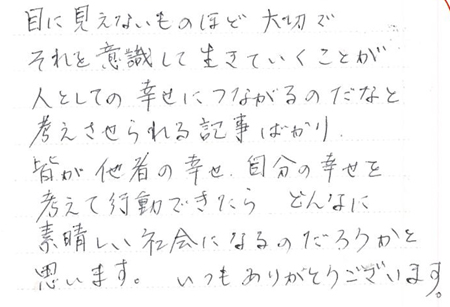 目に見えないものほど 大切で
それを意識して生きていくことが
人としての幸せにつながるのだなと
考えさせられる記事ばかり.
皆が他者の幸せ.自分の幸せを
考えて行動できたら どんなに
素晴しい社会になるのだろうかと
思います。 いつもありがとうございます。